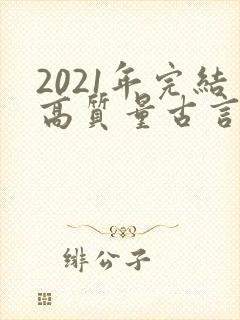 2021年完結
高質量古言
緋公子